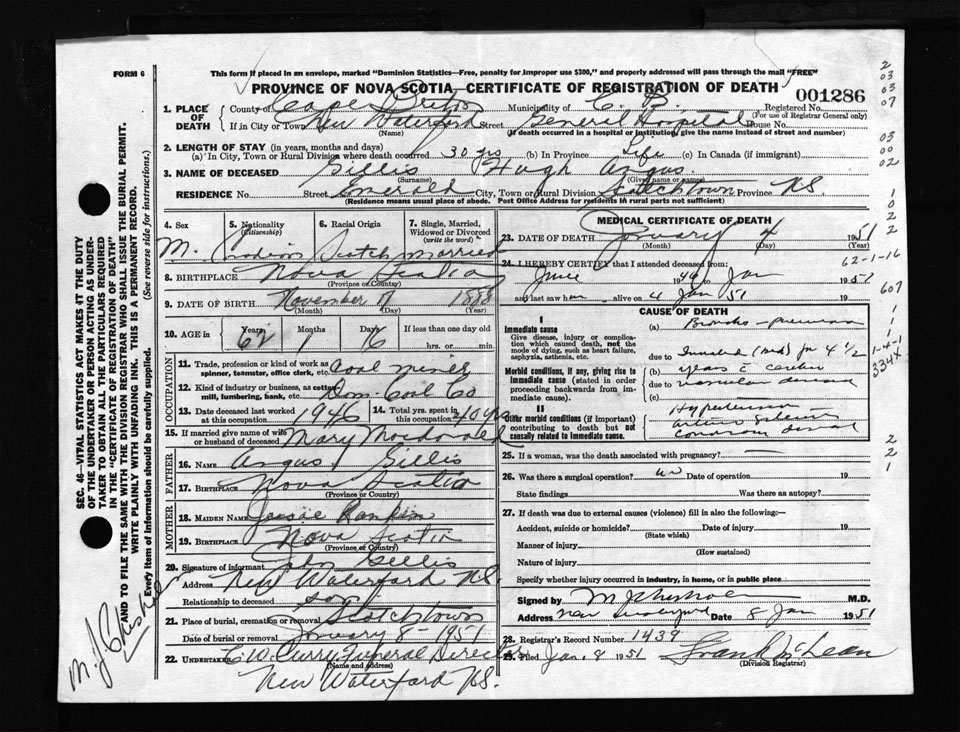 FORM 6
This form if placed in an envelope, marked "Dominion Statistics—Free, penalty for improper use $300," and properly addressed will pass through the mail "FREE"
PROVINCE OF NOVA SCOTIA—CERTIFICATE OF REGISTRATION OF DEATH
001286
1. PLACE OF DEATH
County of Cape Breton Municipality of C. B. Registered No.
(For use of Registrar General only)
If in City or Town New Waterford Street General Hospital House No.
(Name) (If death occurred in a hospital or institution, give the name instead of street and number)
2. LENGTH OF STAY (in years, months and days)
(a) In City, Town or Rural Division where death occurred 30 yrs (b) In Province Life (c) In Canada (if immigrant)
3. NAME OF DECEASED Gillis Hugh Angus
(Surname) (Given name or names)
RESIDENCE No. Street Emerald City, Town or Rural Division Scotchtown Province N.S.
(Residence means usual place of abode. Post Office Address for residents in rural parts not sufficient)
4. Sex 5. Nationality (Citizenship) 6. Racial Origin 7. Single, Married, Widowed or Divorced (write the word)
M. Canadian Scotch married
8. BIRTHPLACE Nova Scotia
(Province or Country)
9. DATE OF BIRTH November 1888
(Month) (Day) (Year)
10. AGE in Years Months Days If less than one day old
62 1 16 hrs. or min.
OCCUPATION
11. Trade, profession or kind of work as spinner, teamster, office clerk, etc. Coal miner
12. Kind of industry or business, as cotton mill, lumbering, bank, etc. Dom. Coal Co
13. Date deceased last worked at this occupation 1946 14. Total yrs. spent in this occupation 40 yrs
15. If married give name of wife or husband of deceased Mary Macdonald
FATHER
16. NAME Angus Gillis
17. BIRTHPLACE Nova Scotia
(Province or Country)
MOTHER
18. MAIDEN NAME Jessie Rankin
19. BIRTHPLACE Nova Scotia
(Province or Country)
20. Signature of informant John Gillis
Address New Waterford N.S.
Relationship to deceased son
21. Place of burial, cremation or removal Scotchtown
Date of burial or removal January 8 - 1951
22. UNDERTAKER C. W. Curry Funeral Director
(Name and Address)
New Waterford N.S.
MEDICAL CERTIFICATE OF DEATH
23. DATE OF DEATH January 4 1951
(Month) (Day) (Year)
24. I HEREBY CERTIFY that I attended deceased from:
June 1946 to Jan 1951
and last saw him alive on 4 Jan 51 19
CAUSE OF DEATH
I
Immediate cause
Give disease, injury or complication which caused death, not the mode of dying, such as heart failure, asphyxia, asthenia, etc.
(a) Broncho-pneumonia
due to Invalid (bed) for 4 1/2
Morbid conditions, if any, giving rise to immediate cause (stated in order proceeding backwards from immediate cause).
(b) years c cardio
due to vascular disease
(c)
II
Other morbid conditions (if important) contributing to death but not causally related to immediate cause.
Hypertension
25. If a woman, was the death associated with pregnancy? —
26. Was there a surgical operation? no Date of operation 19
State findings Was there an autopsy?
27. If death was due to external causes (violence) fill in also the following:—
Accident, suicide or homicide? Date of injury 19
(State which)
Manner of injury
(How sustained)
Nature of injury
Specify whether injury occurred in industry, in home, or in public place
Signed by M.D.
Address New Waterford Date 8 Jan 1951
28. Registrar's Record Number 1439
29. Filed Jan. 8 1951 Frank McLean
(Division Registrar)
SEC. 46—VITAL STATISTICS ACT MAKES IT THE DUTY
OF THE UNDERTAKER OR PERSON ACTING AS UNDER-
TAKER TO OBTAIN ALL THE PARTICULARS REQUIRED
IN THE "CERTIFICATE OF REGISTRATION OF DEATH"
AND TO FILE THE SAME WITH THE DIVISION REGISTRAR WHO SHALL ISSUE THE BURIAL PERMIT.
WRITE PLAINLY WITH UNFADING INK. THIS IS A PERMANENT RECORD.
Every item of Information should be carefully supplied. (See reverse side for instructions.)
2
03
03
07
03
00
02
1
0
2
2
62-1-16
607
1
1
1-4-1
334X
2
2
1